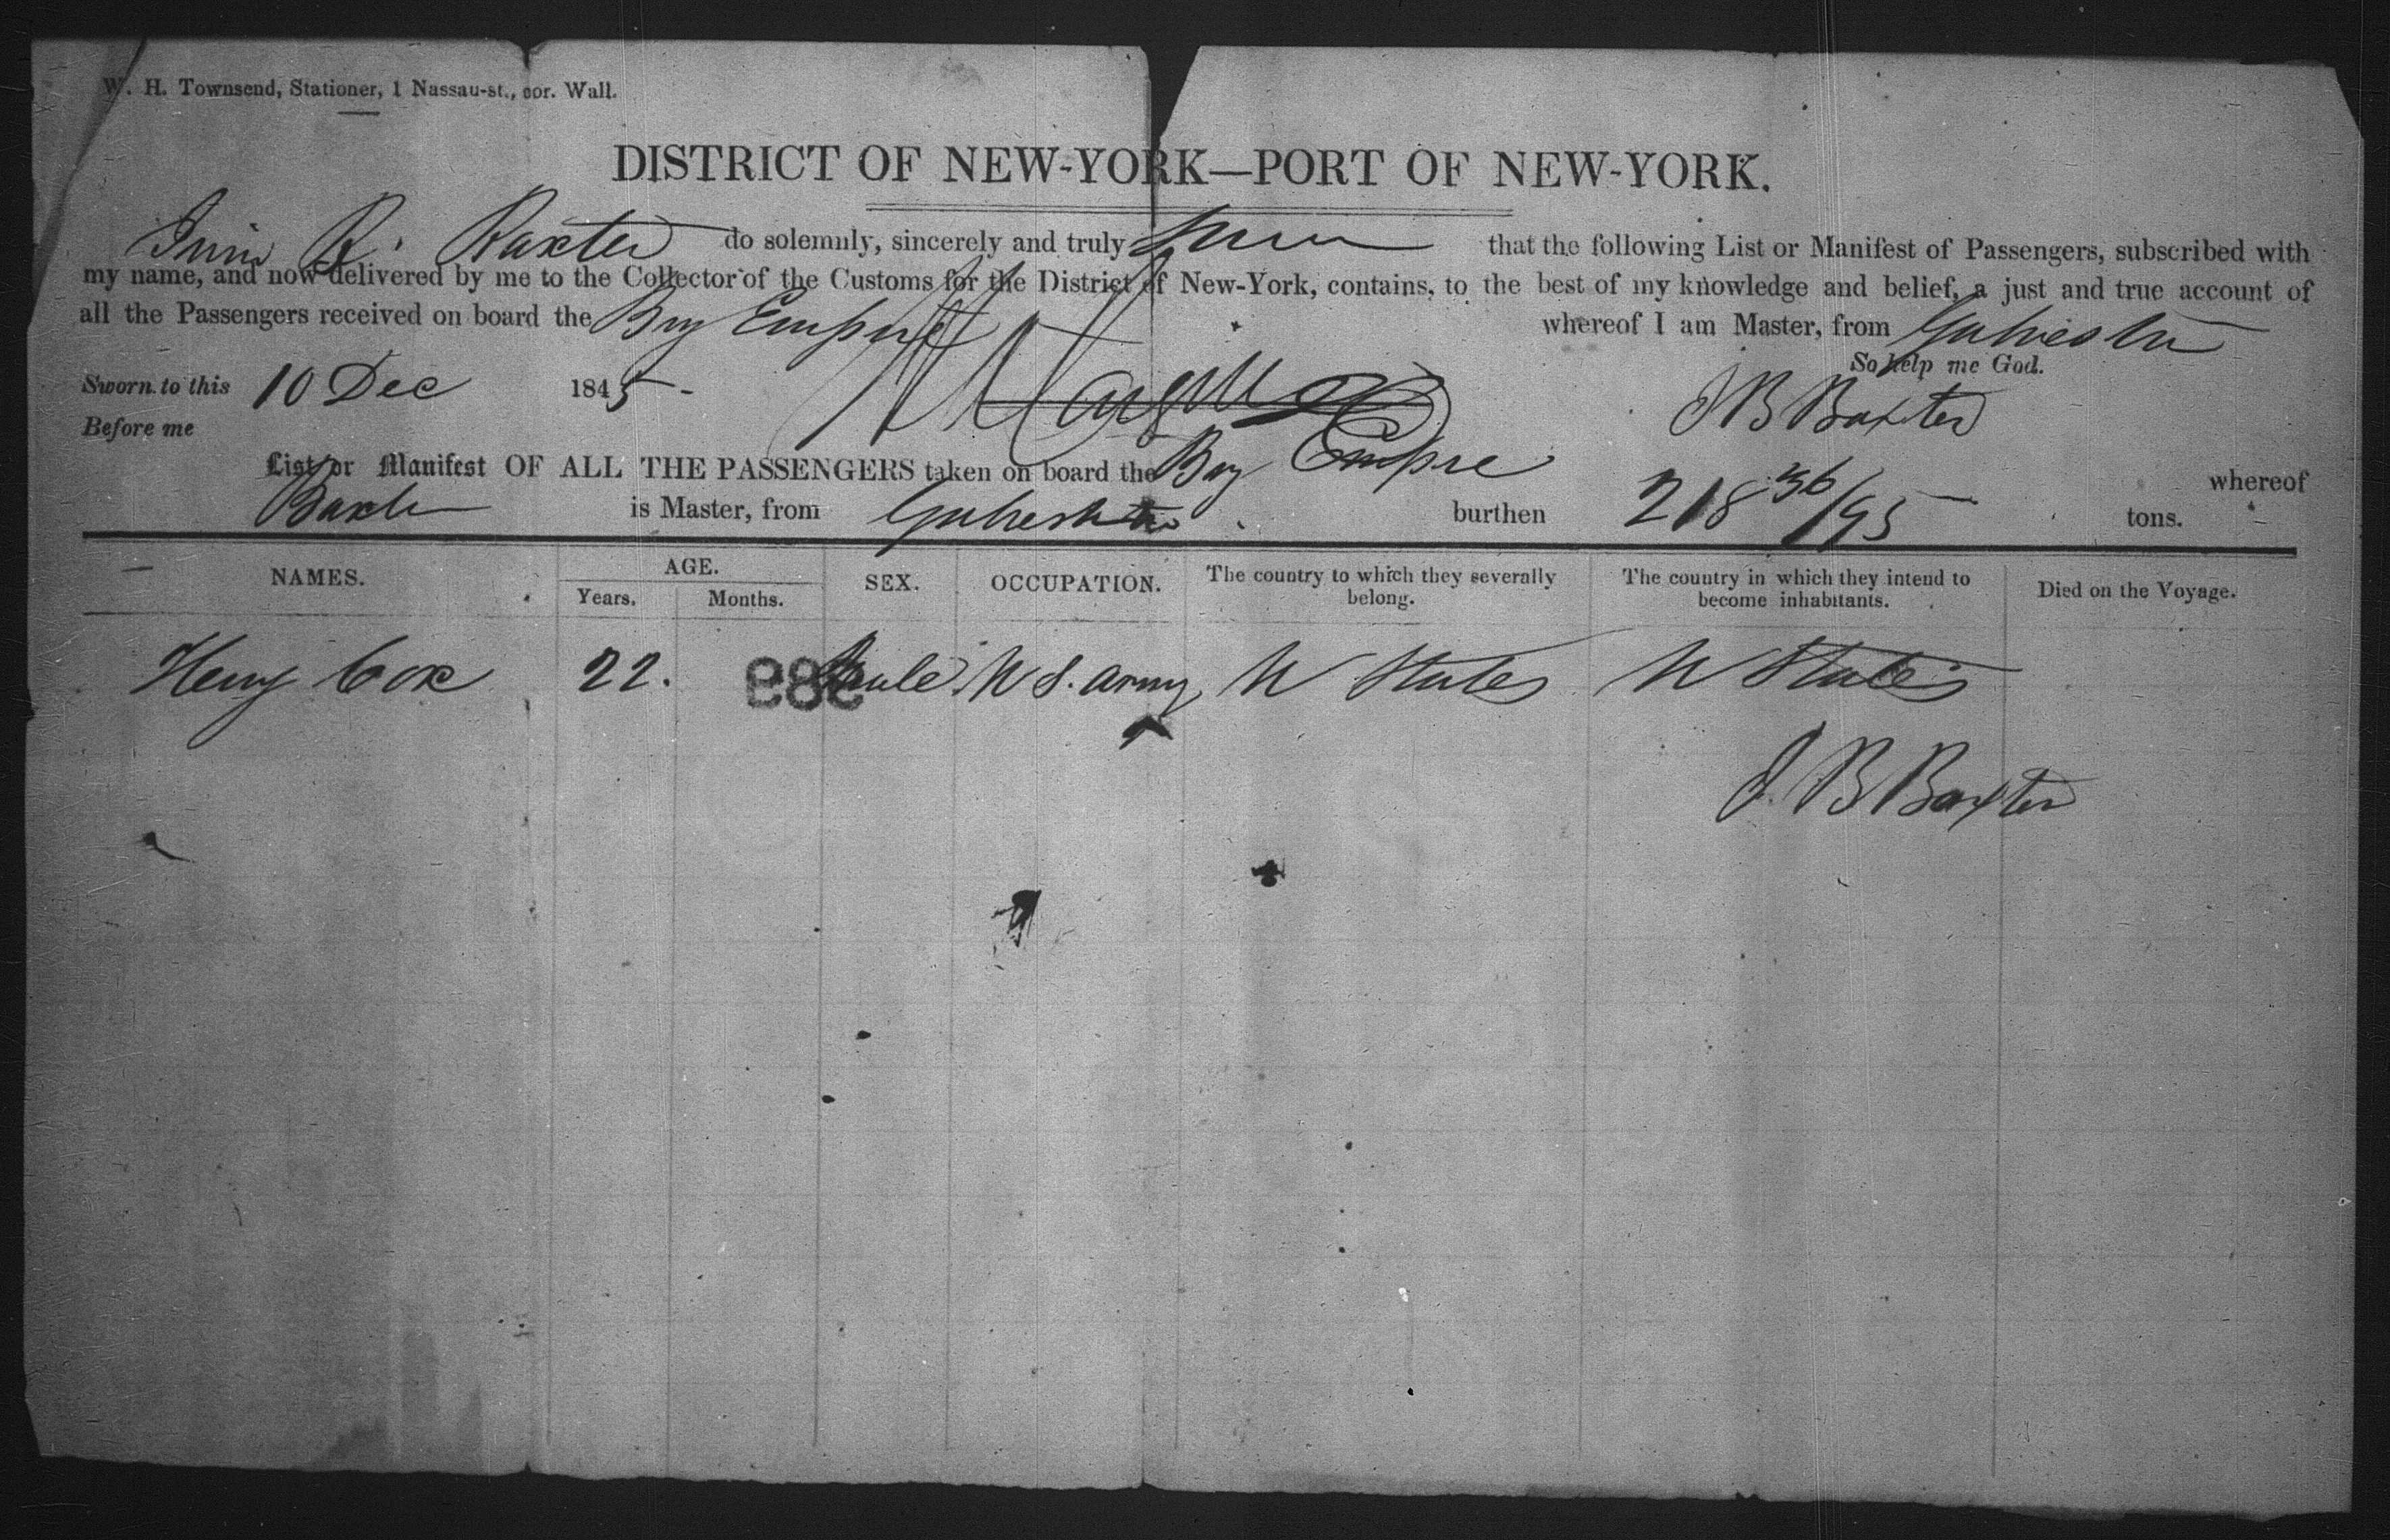 W. H. Townsend, Stationer, 1 Nassau-st., cor. Wall.
DISTRICT OF NEW-YORK—PORT OF NEW-YORK.
Baxter do solemnly, sincerely and truly swear that the following List or Manifest of Passengers, subscribed with
my name, and now delivered by me to the Collector of the Customs for the District of New-York, contains, to the best of my knowledge and belief, a just and true account of
all the Passengers received on board the Brig Empire whereof I am Master, from Galveston
So help me God.
Sworn to this 10 Dec 1845 J B Baxter
Before me
List or Manifest OF ALL THE PASSENGERS taken on board the Brig Empire whereof
Baxter is Master, from Galveston burthen 218 36/95 tons.
NAMES. AGE. Years. Months. SEX. OCCUPATION. The country to which they severally belong. The country in which they intend to become inhabitants. Died on the Voyage.
Henry Cox 22. 989 Male U S. Army U States U States
J. B Baxter